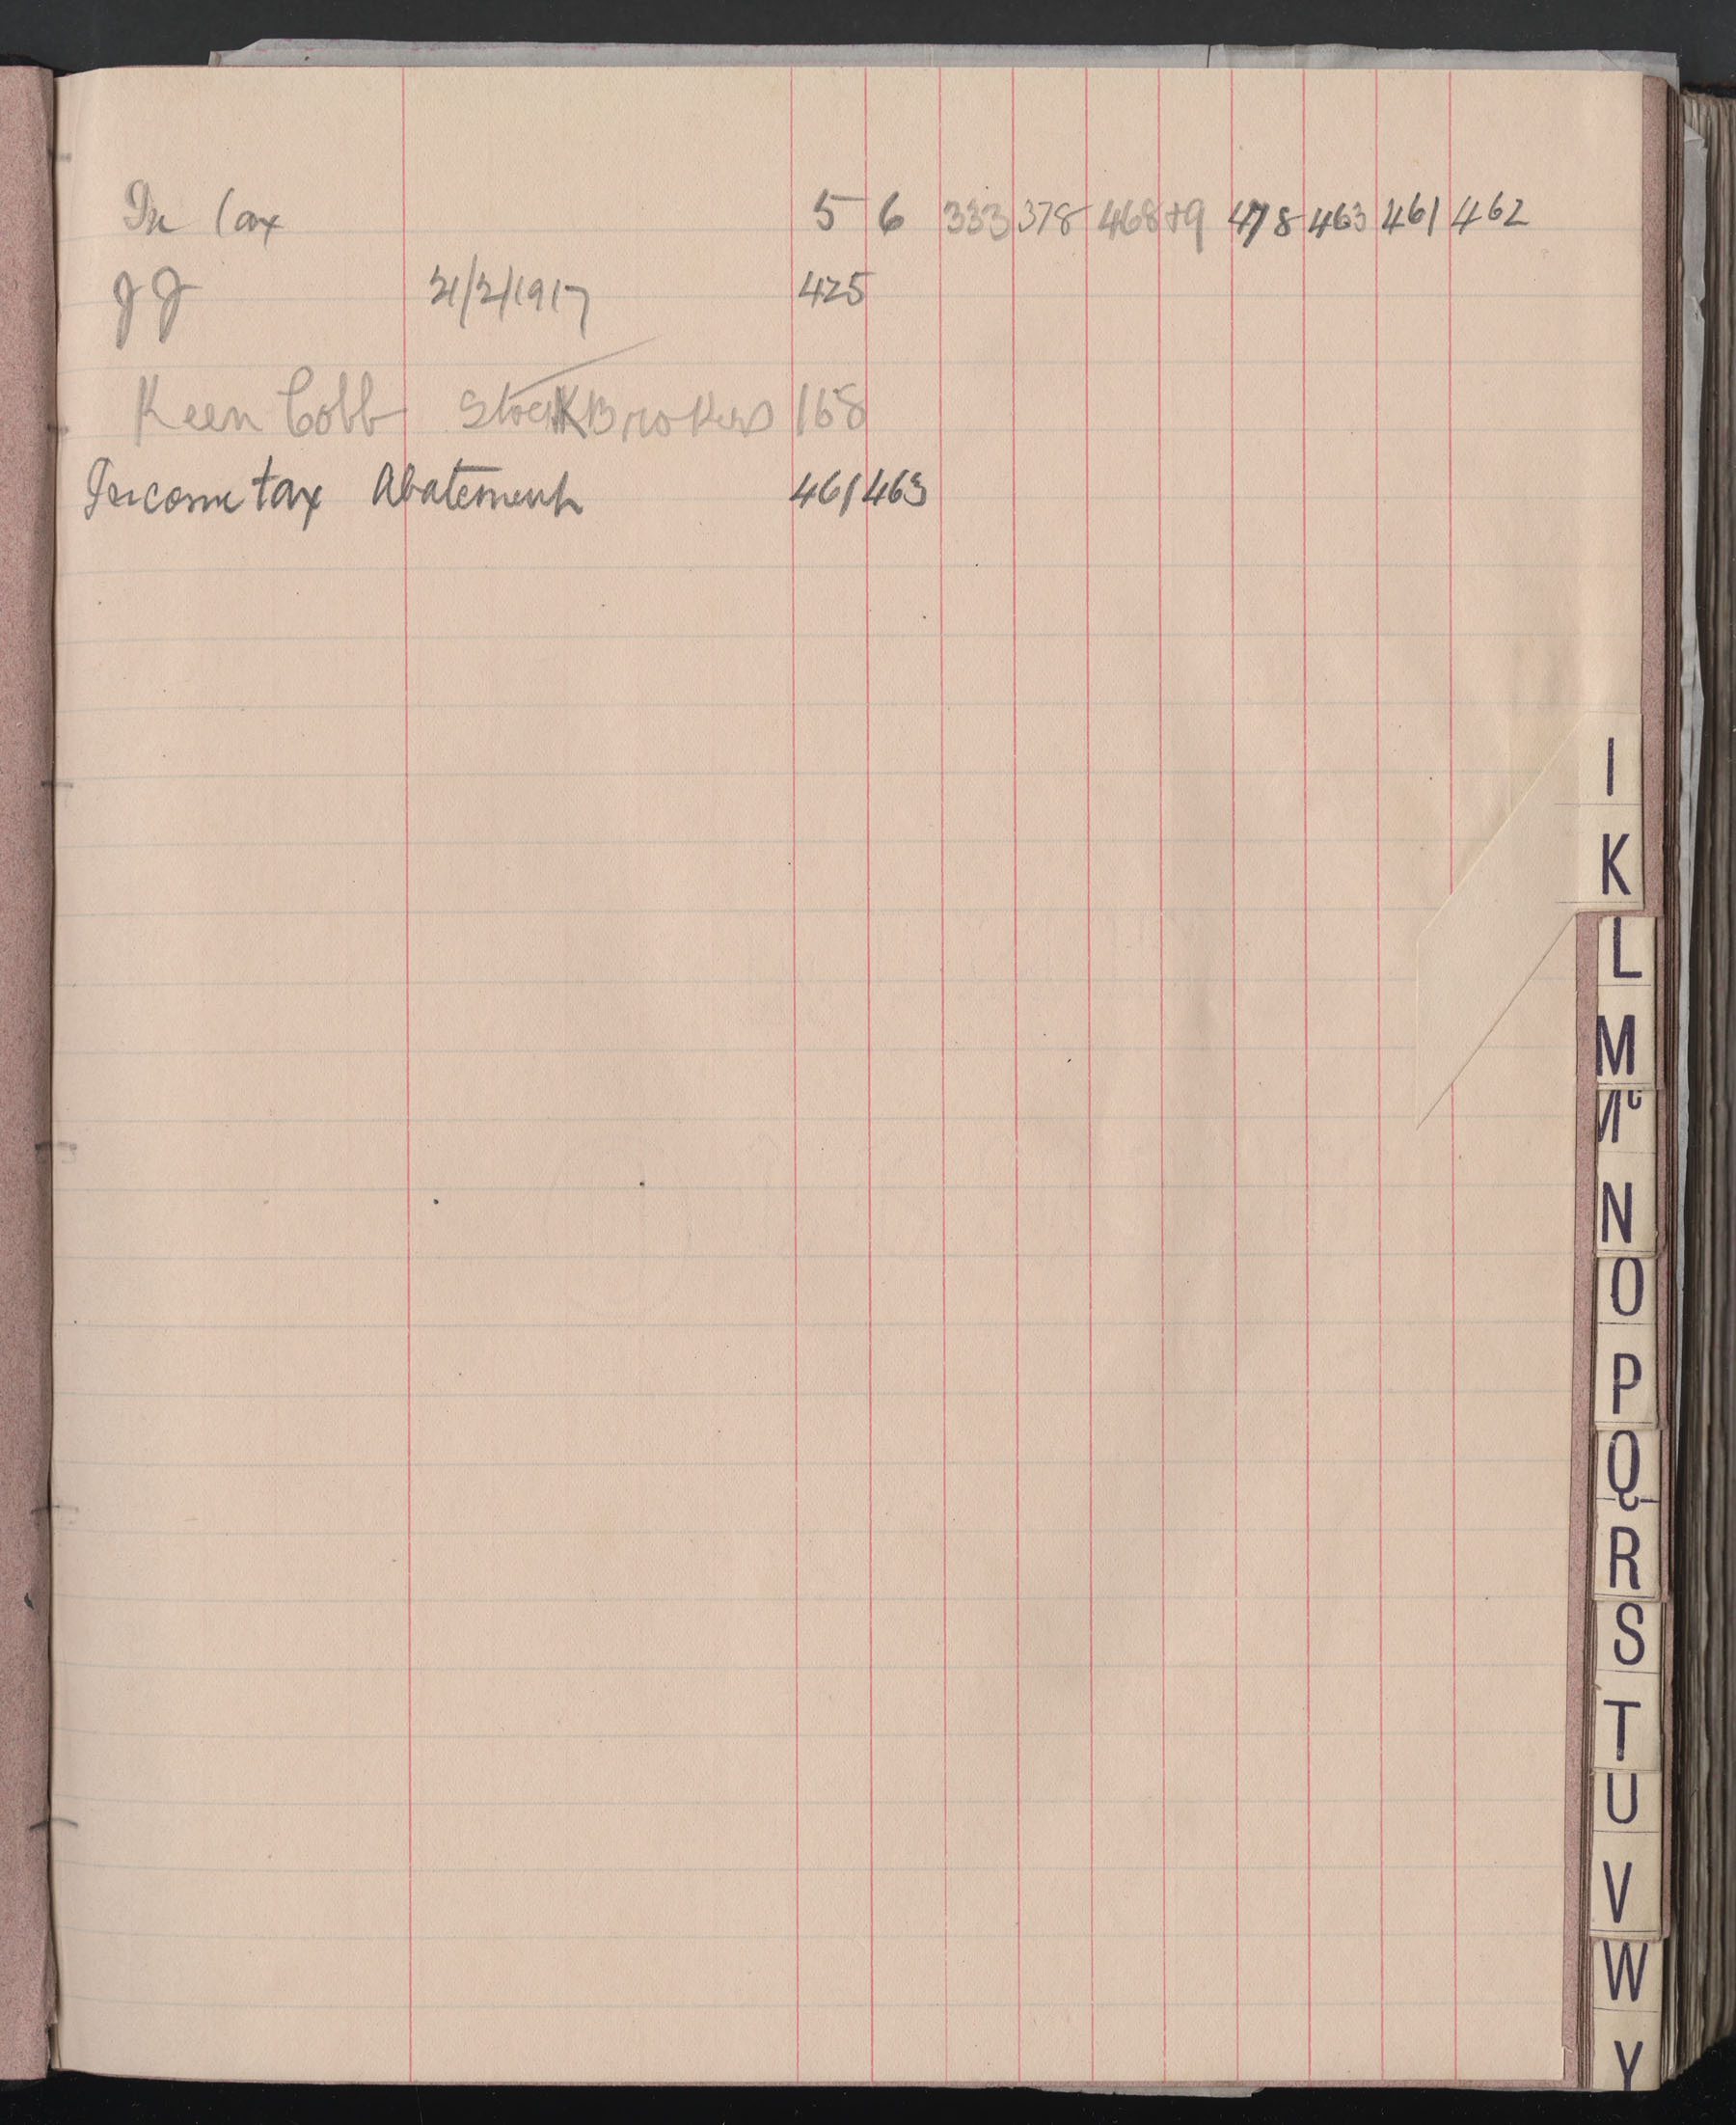 In tax 5 6 333 378 468+9 478 463 461 462
JJ 21/2/1917 425
Keen Cobb StocKBrokers 168
Income tax Abatement 461 463
I
K
L
M
Mc
N
O
P
Q
R
S
T
U
V
W
Y